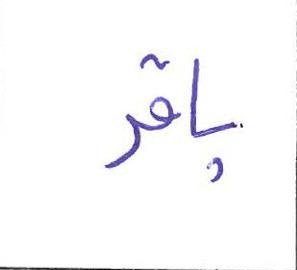 باقر